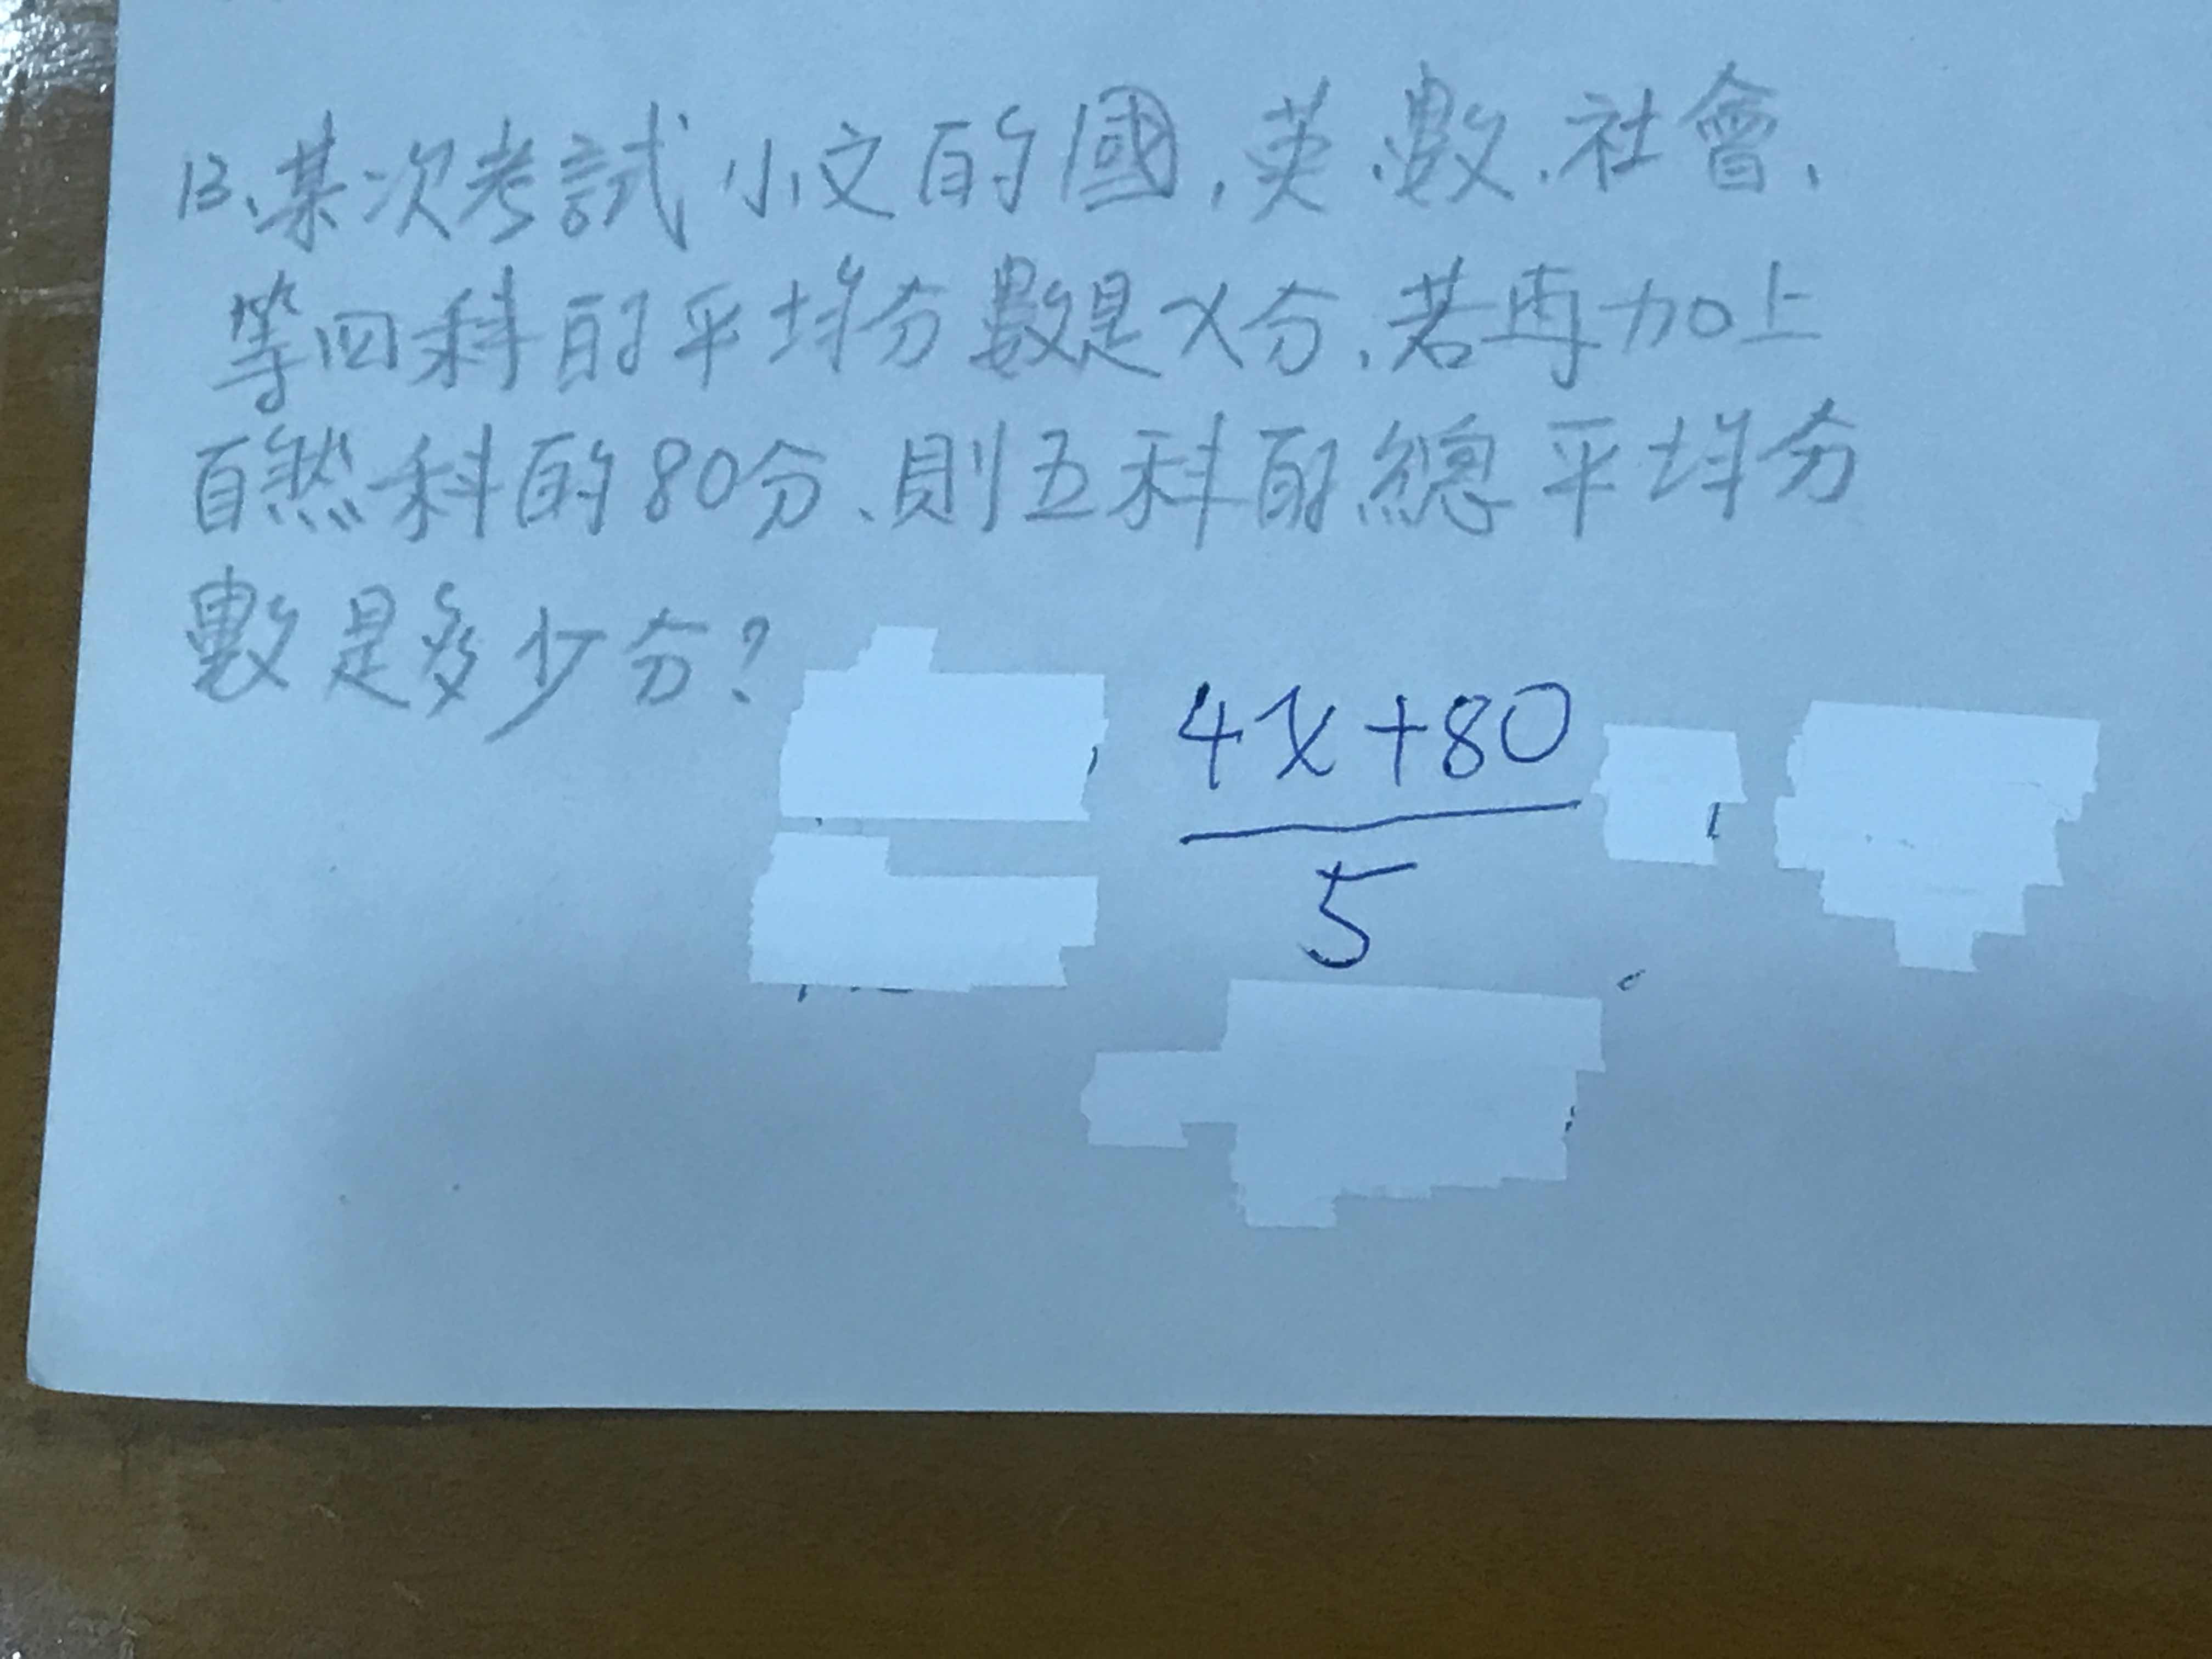 13、某次考試小文的國、英、數、社會、
等四科的平均分數是x分、若再加上
自然科的80分、則五科的總平均分
數是多少分?
4x+80
5